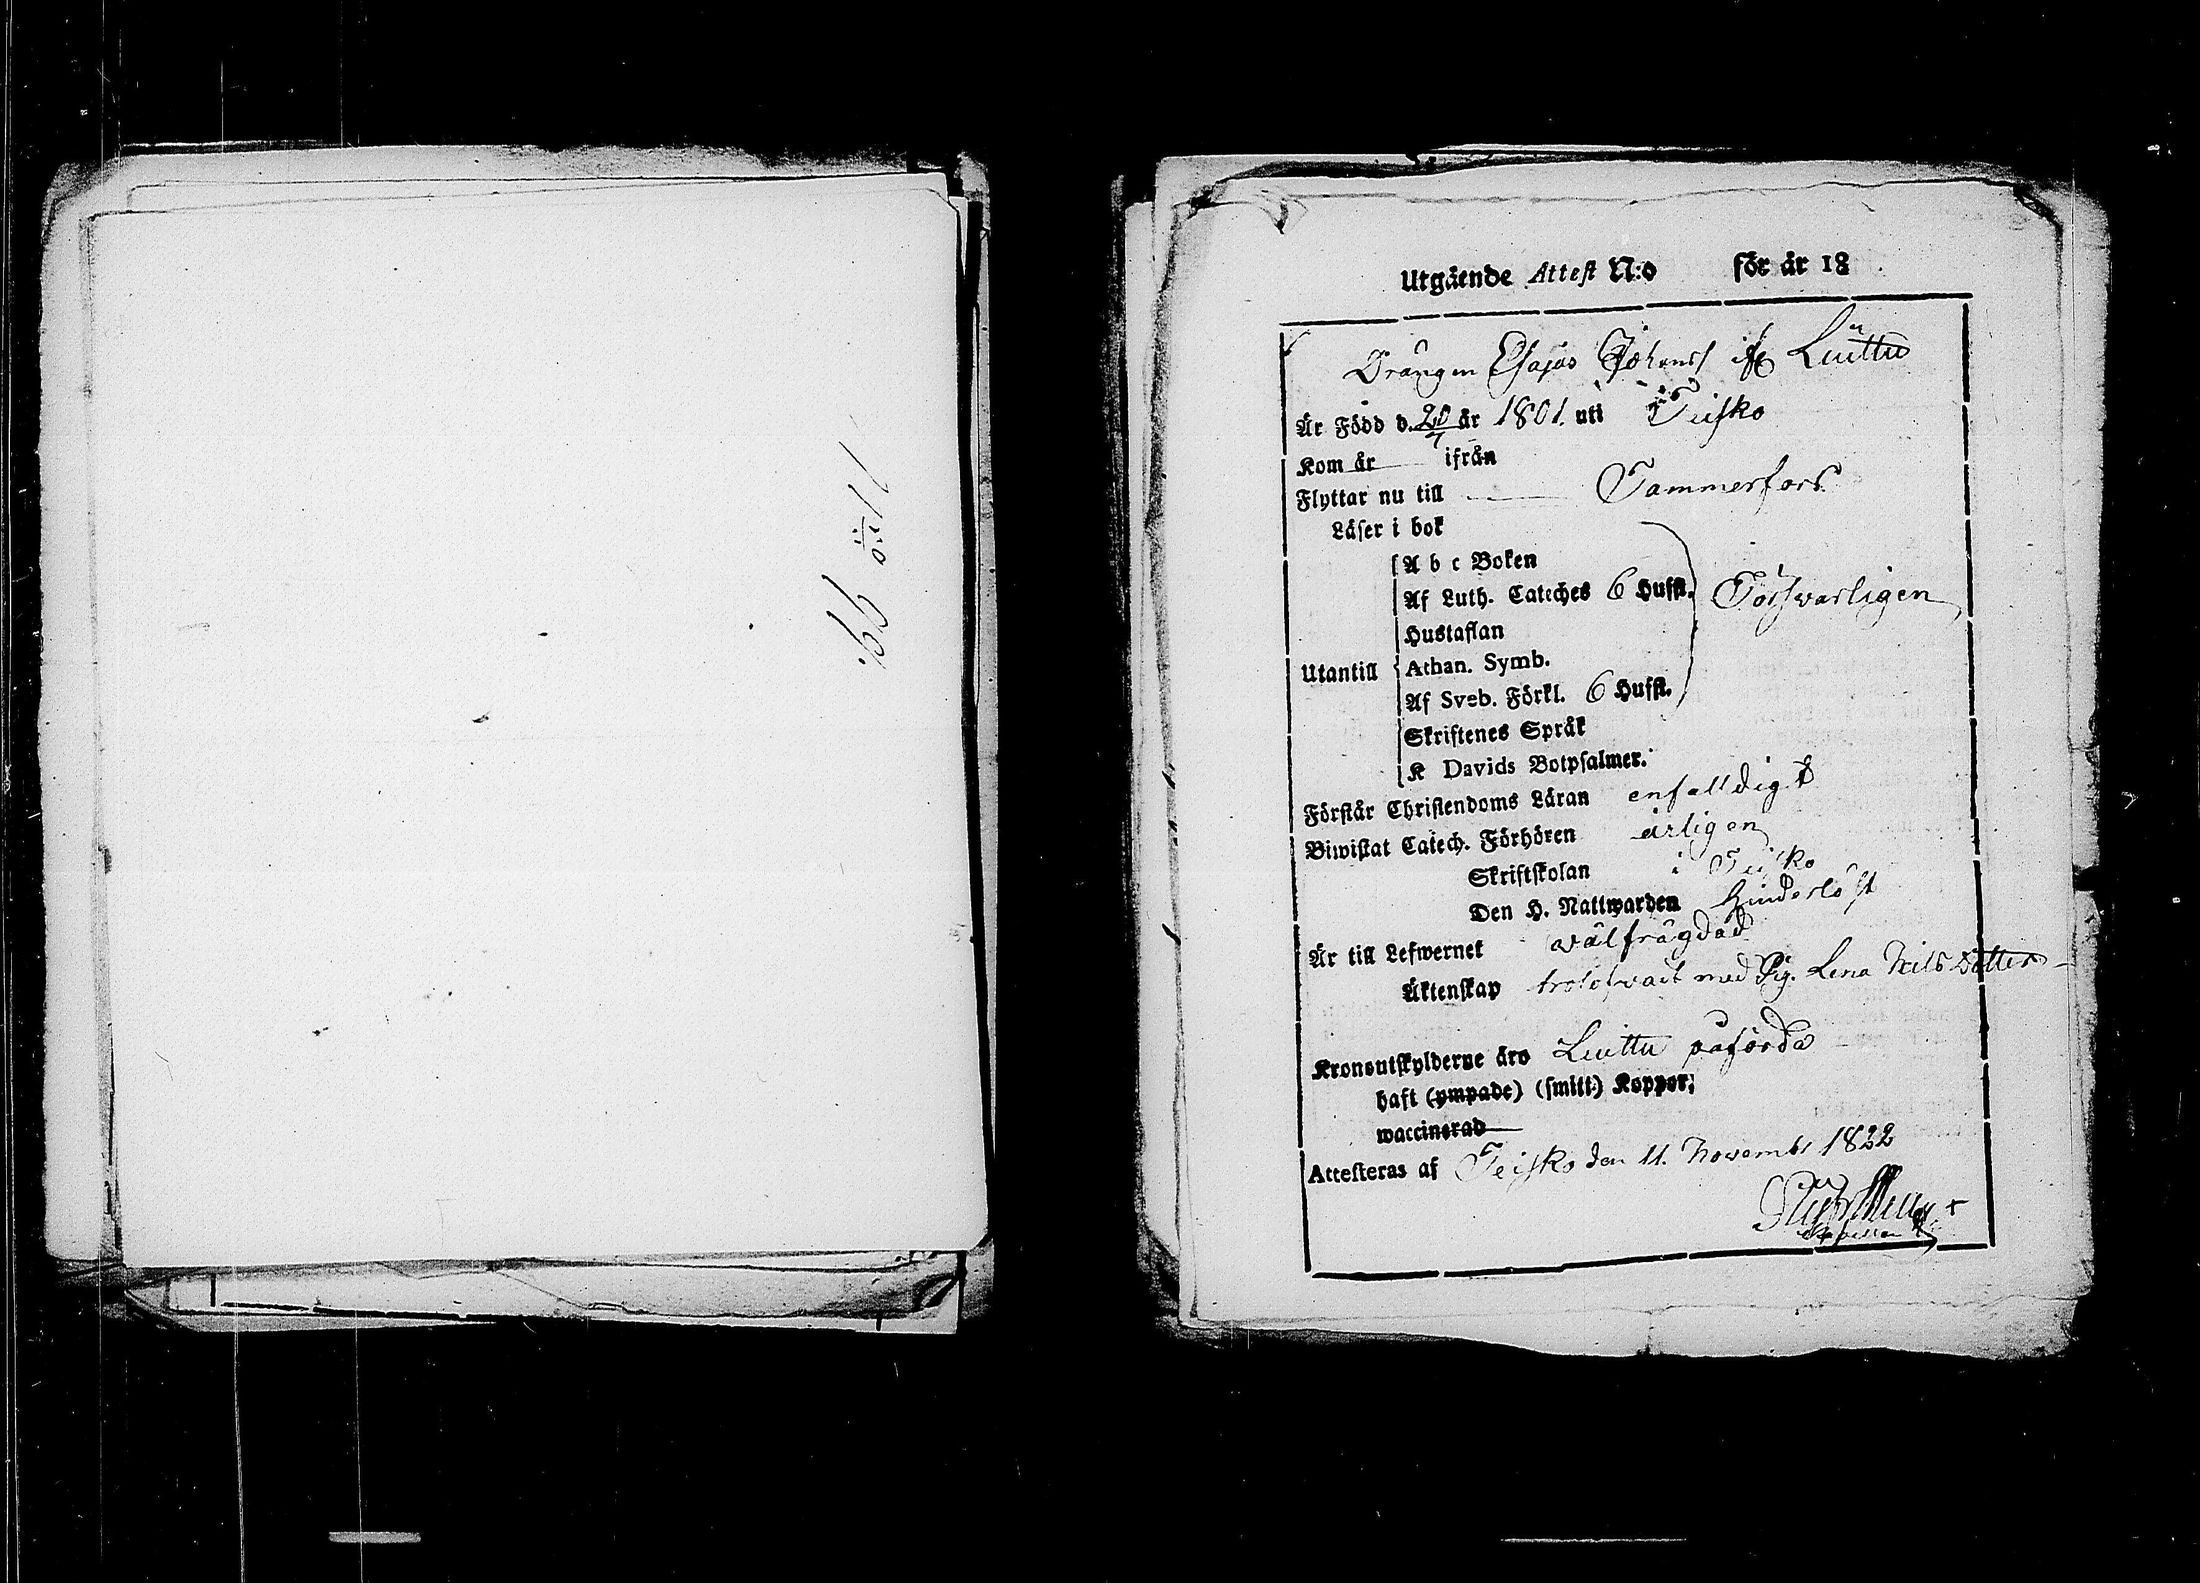 Utgående Attest N:o för år 18
Drängen Esajas Johanss ifr Luuttu
Är Född d. 20/7 år 1801. uti Teisko
Kom år — ifrån
Flyttar nu till — Tammerfors
Läser i bok
A b c Boken
Af Luth. Cateches 6 Hufst. Försvarligen
Hustaflan
Utantill Athan. Symb.
Af Sveb. Förkl. 6 Hufst.
Skriftenes Språk
K Davids Botpsalmer.
Förstår Christendoms Läran enfalldigt
Biwistat Catech. Förhören årligen
Skriftskolan i Teisko
Den H. Nattwarden hinderlöst
Är till Lefwernet välfrägdad
Äktenskap trolofvad med Pig. Lena Nils Dotter
Kronoutskylderne äro Luuttu påförda
haft (ympade) (smitt.) Koppor;
waccinerad
Attesteras af Teisko den 11. Novembr 1822